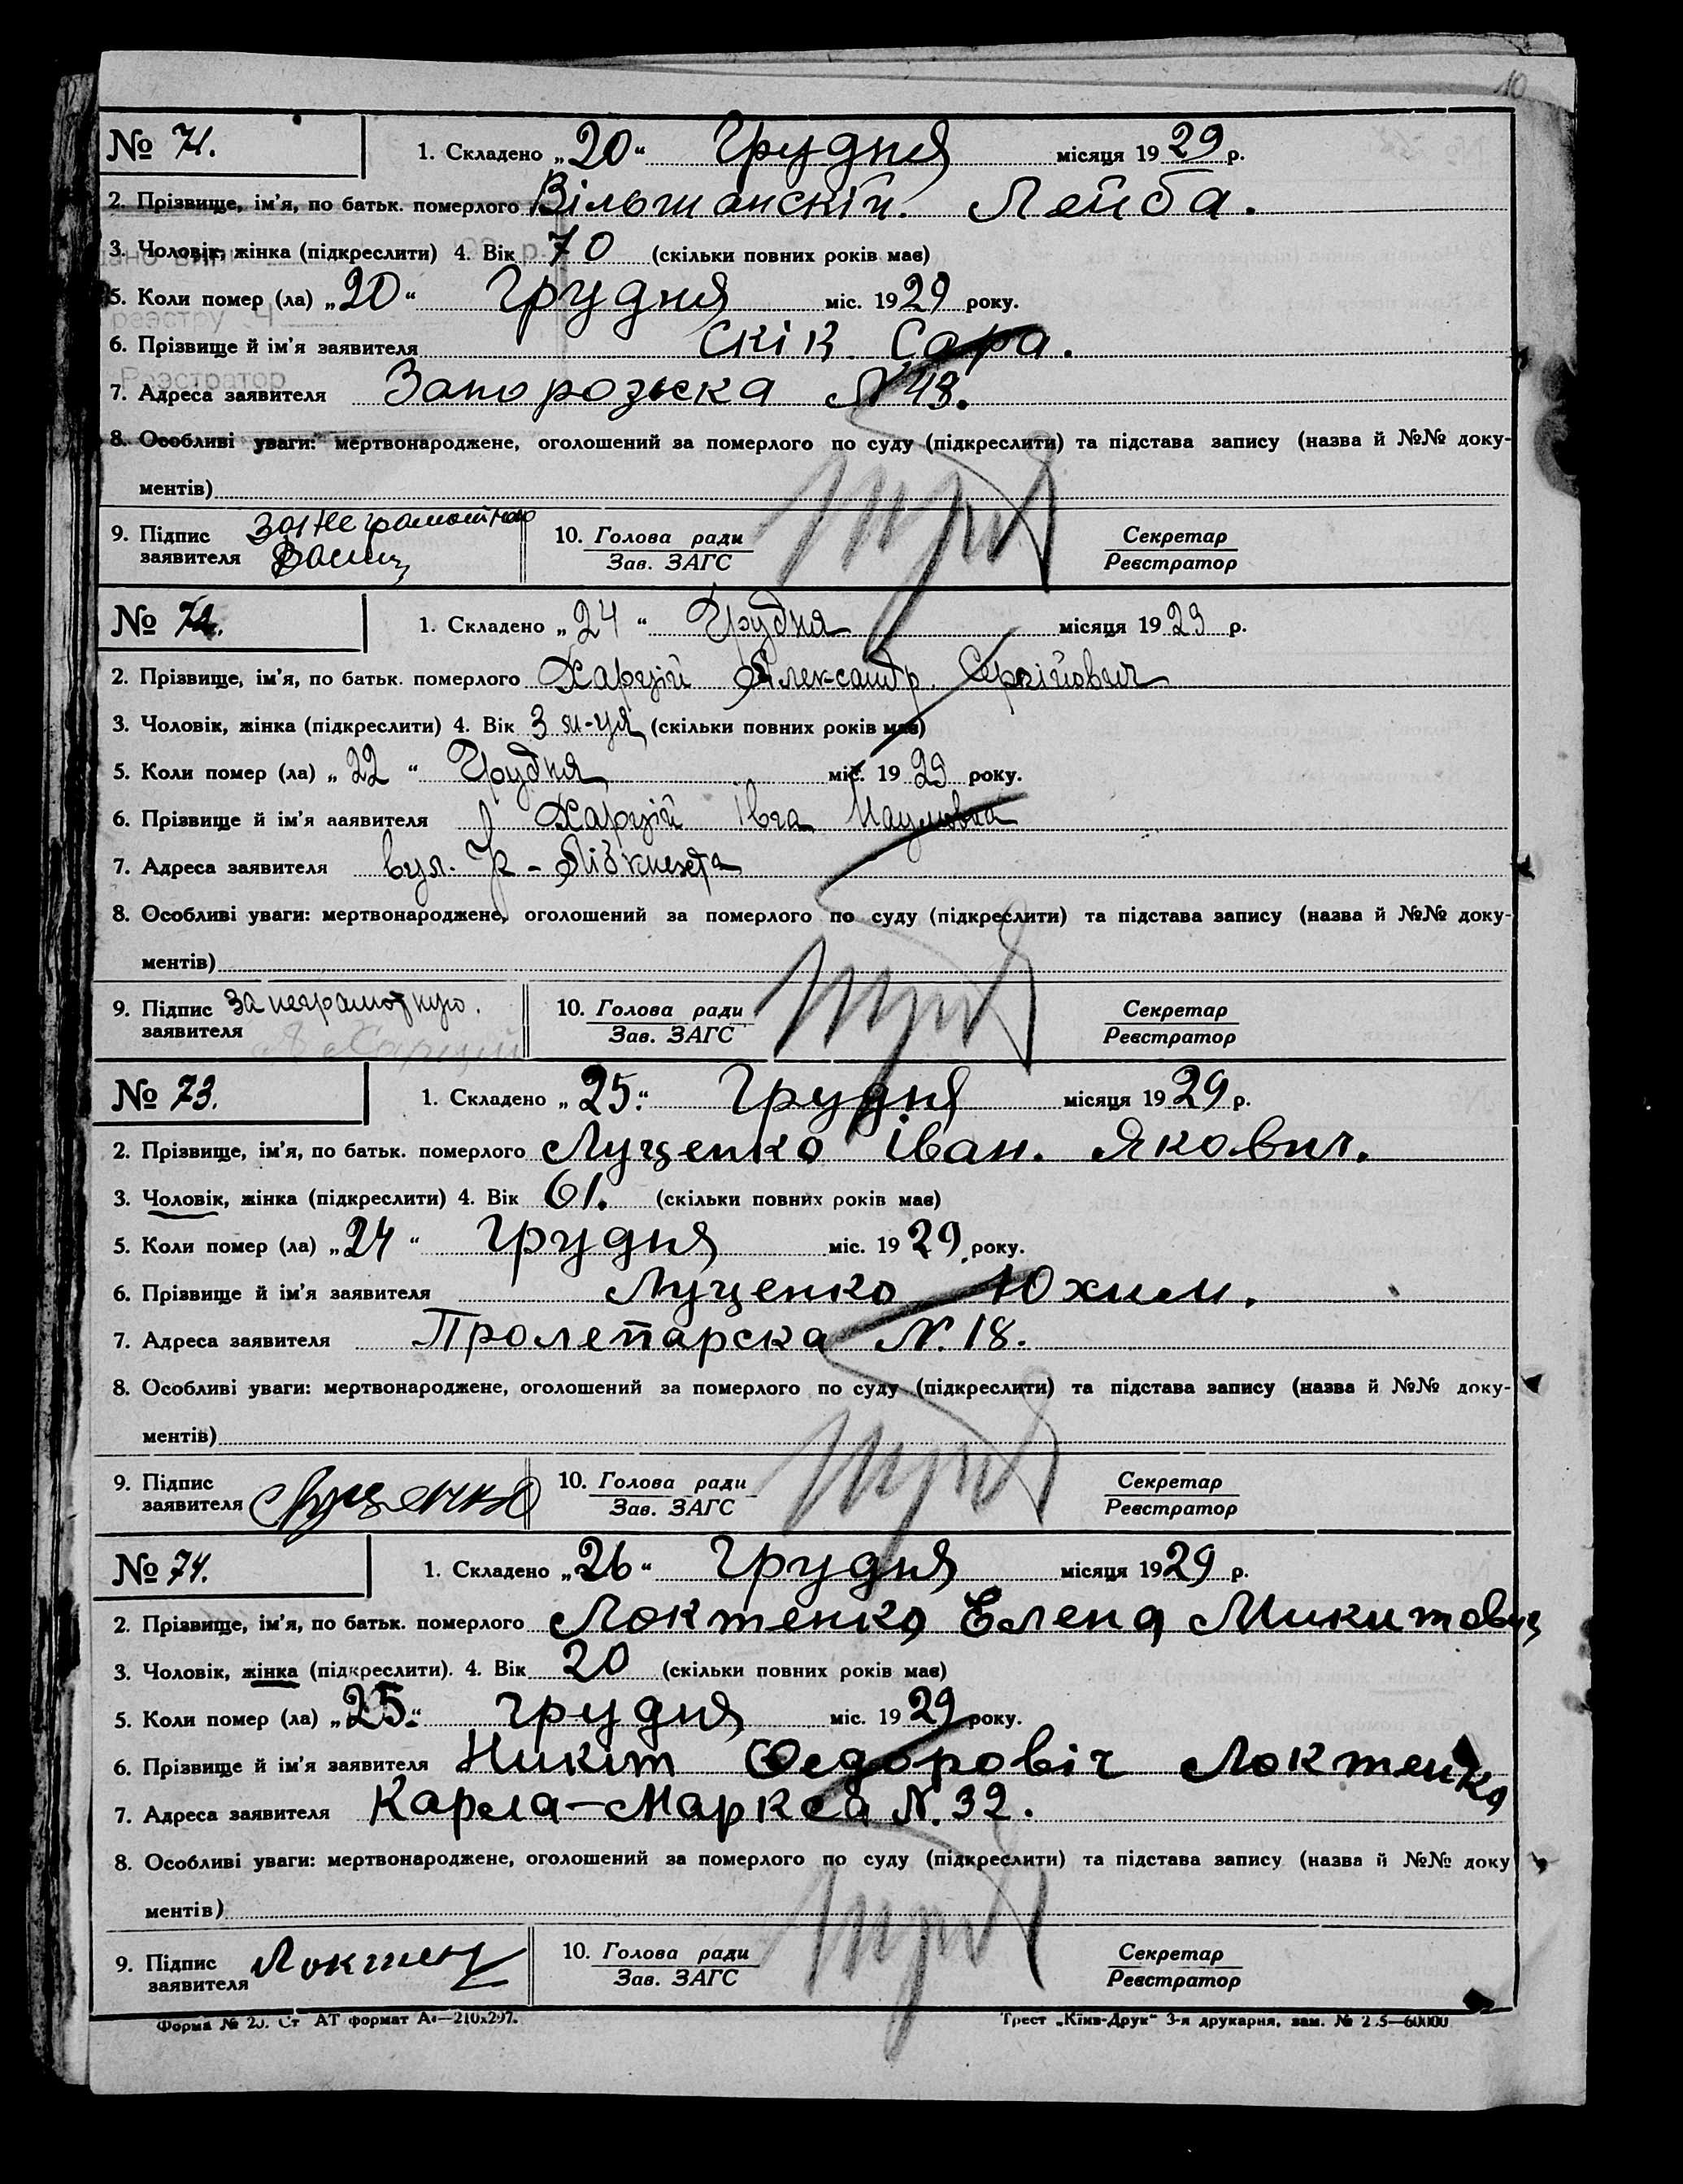 10
№ 71.
1. Складено „20“ Грудня місяця 1929 р.
2. Прізвище, ім'я, по батьк. померлого Вільшанскій. Лейба.
3. Чоловік, жінка (підкреслити) 4. Вік 70 (скільки повних років має)
5. Коли помер (ла) „20“ Грудня міс. 1929 року.
реєстру Ч
6. Прізвище й ім'я заявителя Скік Сара.
Реєстратор
7. Адреса заявителя Запорозька № 43.
8. Особливі уваги: мертвонароджене, оголошений за померлого по суду (підкреслити) та підстава запису (назва й №№ доку-
ментів)
9. Підпис заявителя За неграмотною
10. Голова ради Секретар
Зав. ЗАГС Реєстратор
№ 72.
1. Складено „24“ Грудня місяця 1929 р.
2. Прізвище, ім'я, по батьк. померлого Харцій Александр Сергійович
3. Чоловік, жінка (підкреслити) 4. Вік 3 м-ця (скільки повних років має)
5. Коли помер (ла) „22“ Грудня міс. 1929 року.
6. Прізвище й ім'я ааявителя Харцій Івга Наумовна
7. Адреса заявителя вул. К-Лібкнехта
8. Особливі уваги: мертвонароджене, оголошений за померлого по суду (підкреслити) та підстава запису (назва й №№ доку-
ментів)
9. Підпис заявителя За неграмотную.
Харций
10. Голова ради Секретар
Зав. ЗАГС Реєстратор
№ 73.
1. Складено „25.“ Грудня місяця 1929 р.
2. Прізвище, ім'я, по батьк. померлого Луценко Іван. Якович.
3. Чоловік, жінка (підкреслити) 4. Вік 61. (скільки повних років має)
5. Коли помер (ла) „24“ Грудня міс. 1929 року.
6. Прізвище й ім'я заявителя Луценко Юхим.
7. Адреса заявителя Пролетарска №. 18.
8. Особливі уваги: мертвонароджене, оголошений за померлого по суду (підкреслити) та підстава запису (назва й №№ доку-
ментів)
9. Підпис заявителя Луценко
10. Голова ради Секретар
Зав. ЗАГС Реєстратор
№ 74.
1. Складено „26“ Грудня місяця 1929 р.
2. Прізвище, ім'я, по батьк. померлого Локтенко Елена
3. Чоловік, жінка (підкреслити). 4. Вік 20 (скільки повних років має)
5. Коли помер (ла) „25.“ грудня міс. 1929 року.
6. Прізвище й ім'я заявителя Никит Федоровіч Локтенко
7. Адреса заявителя Карла-Маркса №. 32.
8. Особливі уваги: мертвонароджене, оголошений за померлого по суду (підкреслити) та підстава запису (назва й №№ доку
ментів)
9. Підпис заявителя Локтен
10. Голова ради Секретар
Зав. ЗАГС Реєстратор
Форма № 20. Ст АТ формат А4—210х297.
Трест „Київ-Друк“ 3-я друкарня, зам. №